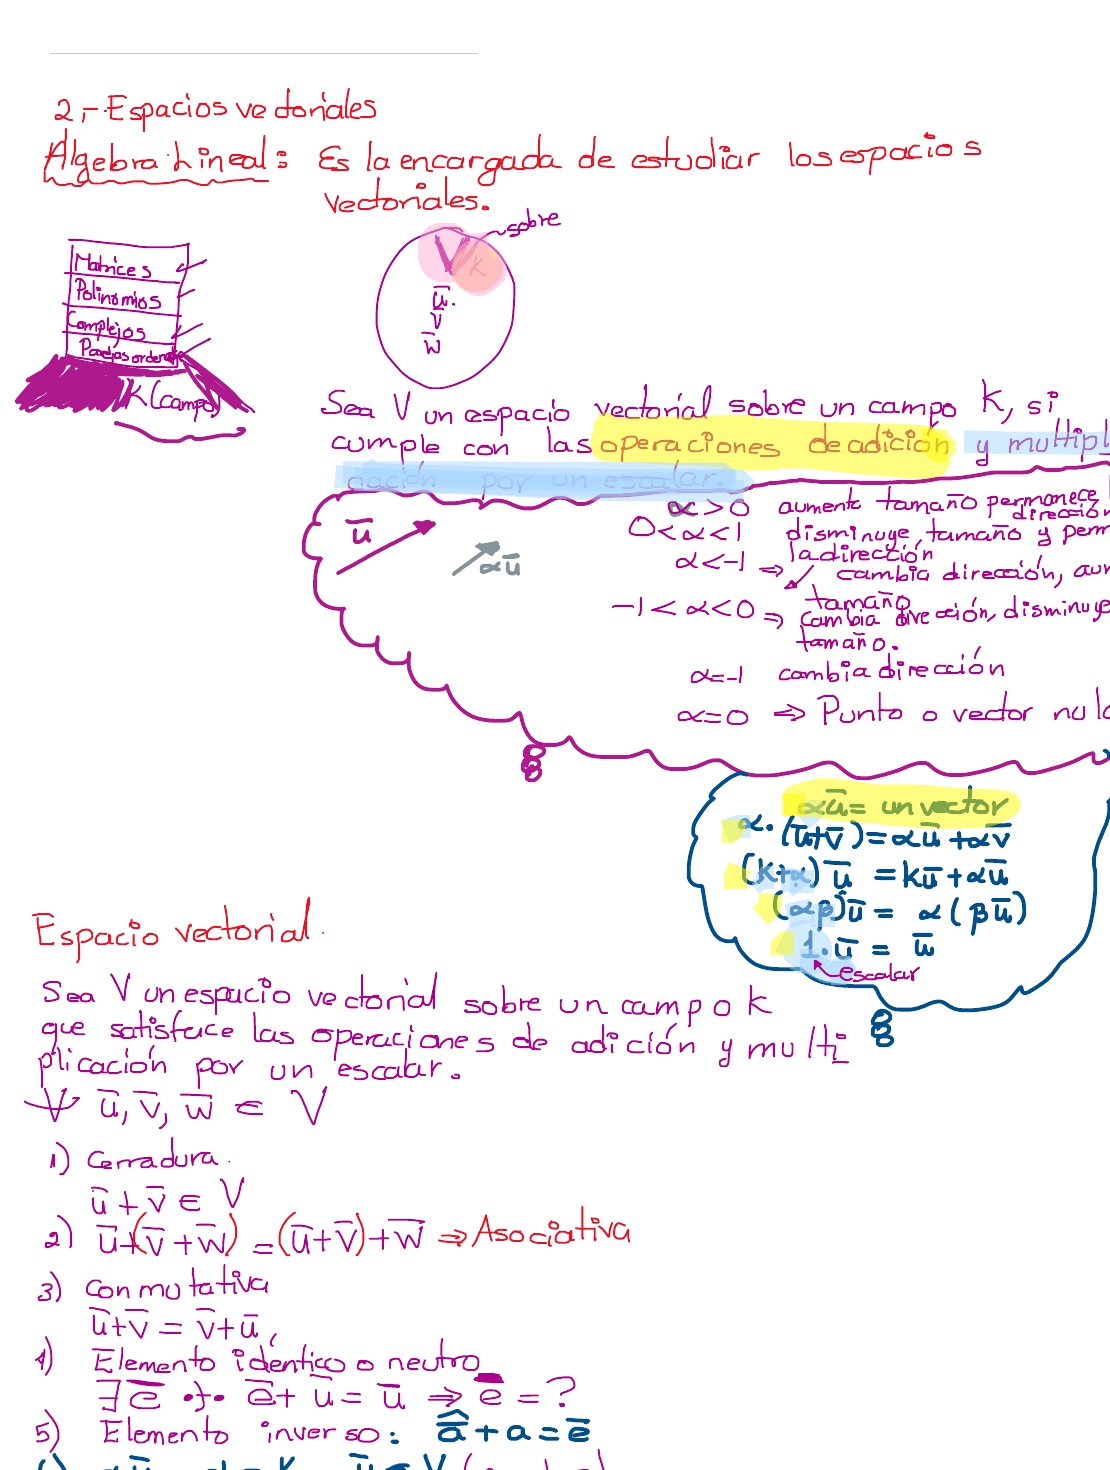 2.- Espacios vectoriales
Álgebra Lineal: Es la encargada de estudiar los espacios
vectoriales.
sobre
V K
ū.
v̄
w̄
Matrices
Polinomios
Complejos
Parejas ordenadas
K (campo)
Sea V un espacio vectorial sobre un campo K, si
cumple con las operaciones de adición y multipl
cación por un escalar.
ū
αū
α>0 aumenta tamaño permanece
dirección
0<α<1 disminuye, tamaño y perm
la dirección
α<-1 ⇒ cambia dirección, aum
tamaño
-1<α<0 ⇒ cambia dirección, disminuye
tamaño.
α=-1 cambia dirección
α=0 ⇒ Punto o vector nulo
αū = un vector
α.(ū+v̄)=αū+αv̄
(k+α)ū = kū+αū
(αβ)ū = α(βū)
1.ū = ū
escalar
Espacio vectorial.
Sea V un espacio vectorial sobre un campo K
que satisface las operaciones de adición y multi
plicación por un escalar.
∀ ū, v̄, w̄ ∈ V
1) Cerradura.
ū + v̄ ∈ V
2) ū+(v̄+w̄) = (ū+v̄)+w̄ ⇒ Asociativa
3) Conmutativa
ū+v̄ = v̄+ū,
4) Elemento idéntico o neutro
∃ ē ·)· ē + ū = ū ⇒ e = ?
5) Elemento inverso: â + a = ē